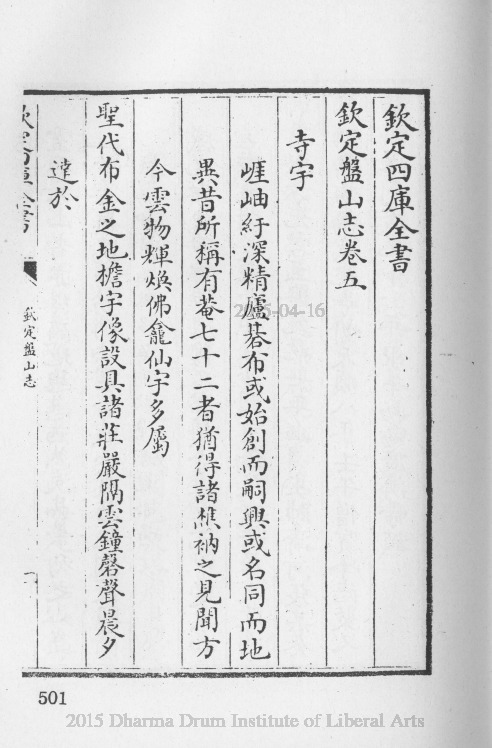 欽定四庫全書
欽定盤山志卷五
寺宇
崕岫紆深精廬碁布或始創而嗣興或名同而地
異昔所稱有菴七十二者猶得諸樵衲之見聞方
今雲物輝煥佛龕仙宇多屬
聖代布金之地檐宇像設具諸莊嚴隔雲鐘磬聲晨夕
達於
欽定四庫全書
欽定盤山志
一
2015-04-16
501
2015 Dharma Drum Institute of Liberal Arts